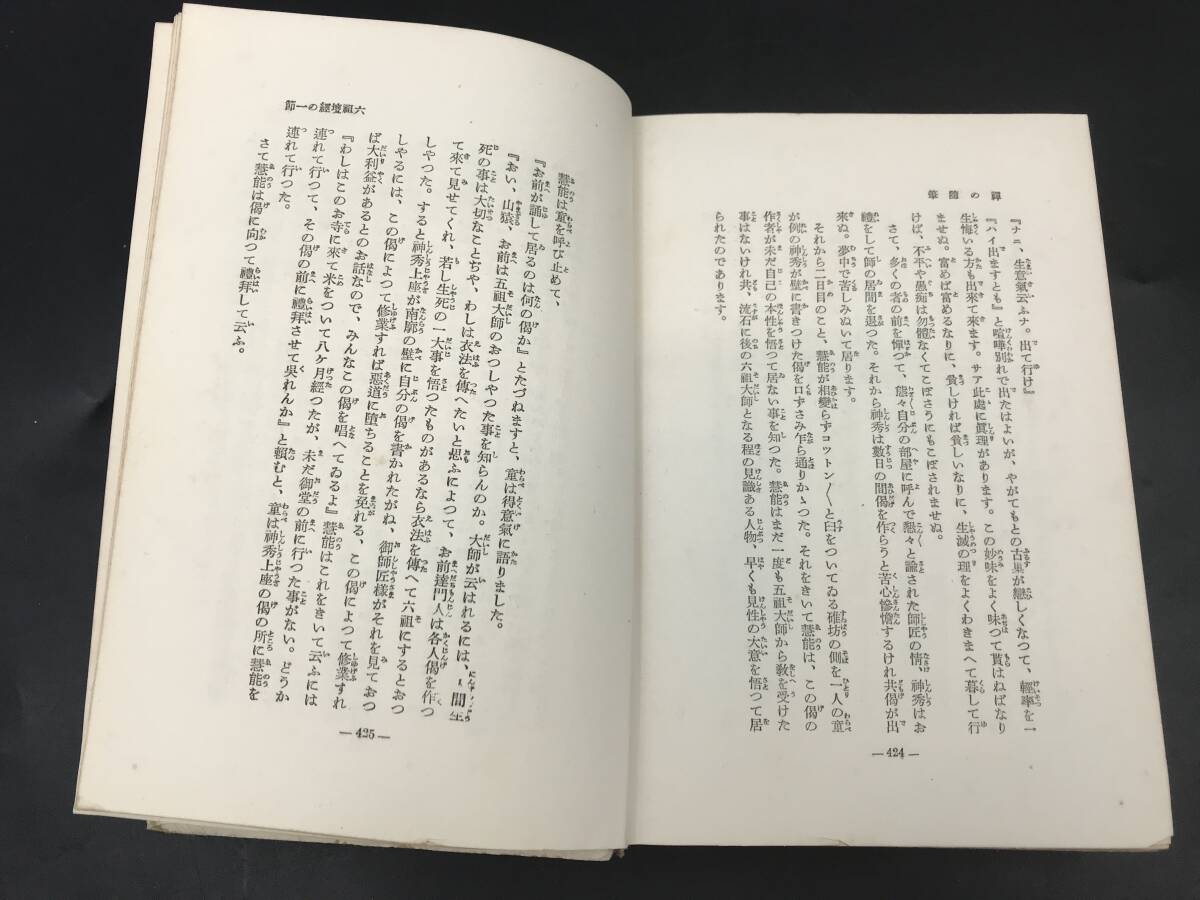 禪の隨筆
『ナニ、生意氣云ふナ。出て行け』
『ハイ出ますとも』と喧嘩別れで出たはよいが、やがてもとの古巣が戀しくなつて、輕率を一
生悔いる方も出來て來ます。サア此處に眞理があります。この妙味をよく味つて貰はねばなり
ませぬ。富めば富めるなりに、貧しければ貧しいなりに、生滅の理をよくわきまへて暮して行
けば、不平や愚痴は勿體なくてこぼさうにもこぼされませぬ。
さて、多くの者の前を憚つて、態々自分の部屋に呼んで懇々と諭された師匠の情、神秀はお
禮をして師の居間を退つた。それから神秀は數日の間偈を作らうと苦心慘憺するけれ共偈が出
來ぬ。夢中で苦しみぬいて居ります。
それから二日目のこと、慧能が相變らずコツトン〳〵と臼をついてゐる碓坊の側を一人の童
が例の神秀が壁に書きつけた偈を口ずさみ乍ら通りかゝつた。それをきいて慧能は、この偈の
作者が未だ自己の本性を悟つて居ない事を知つた。慧能はまだ一度も五祖大師から敎を受けた
事はないけれ共、流石に後の六祖大師となる程の見識ある人物、早くも見性の大意を悟つて居
られたのであります。
— 424 —
六祖壇經の一節
慧能は童を呼び止めて、
『お前が誦して居るのは何の偈か』とたづねますと、童は得意氣に語りました。
『おい、山猿、お前は五祖大師のおつしやつた事を知らんのか。大師が云はれるには、人間生
死の事は大切なことぢや、わしは衣法を傳へたいと思ふによつて、お前達門人は各人偈を作つ
て來て見せてくれ、若し生死の一大事を悟つたものがあるなら衣法を傳へて六祖にするとおつ
しやつた。すると神秀上座が南廓の壁に自分の偈を書かれたがね、御師匠樣がそれを見ておつ
しやるには、この偈によつて修業すれば惡道に堕ちることを免れる、この偈によつて修業すれ
ば大利益があるとのお話なので、みんなこの偈を唱へてゐるよ』慧能はこれをきいて云ふには
『わしはこのお寺に來て米をついて八ケ月經つたが、未だ御堂の前に行つた事がない。どうか
連れて行つて、その偈の前に禮拜させて吳れんか』と賴むと、童は神秀上座の偈の所に慧能を
連れて行つた。
さて慧能は偈に向つて禮拜して云ふ。
— 425 —